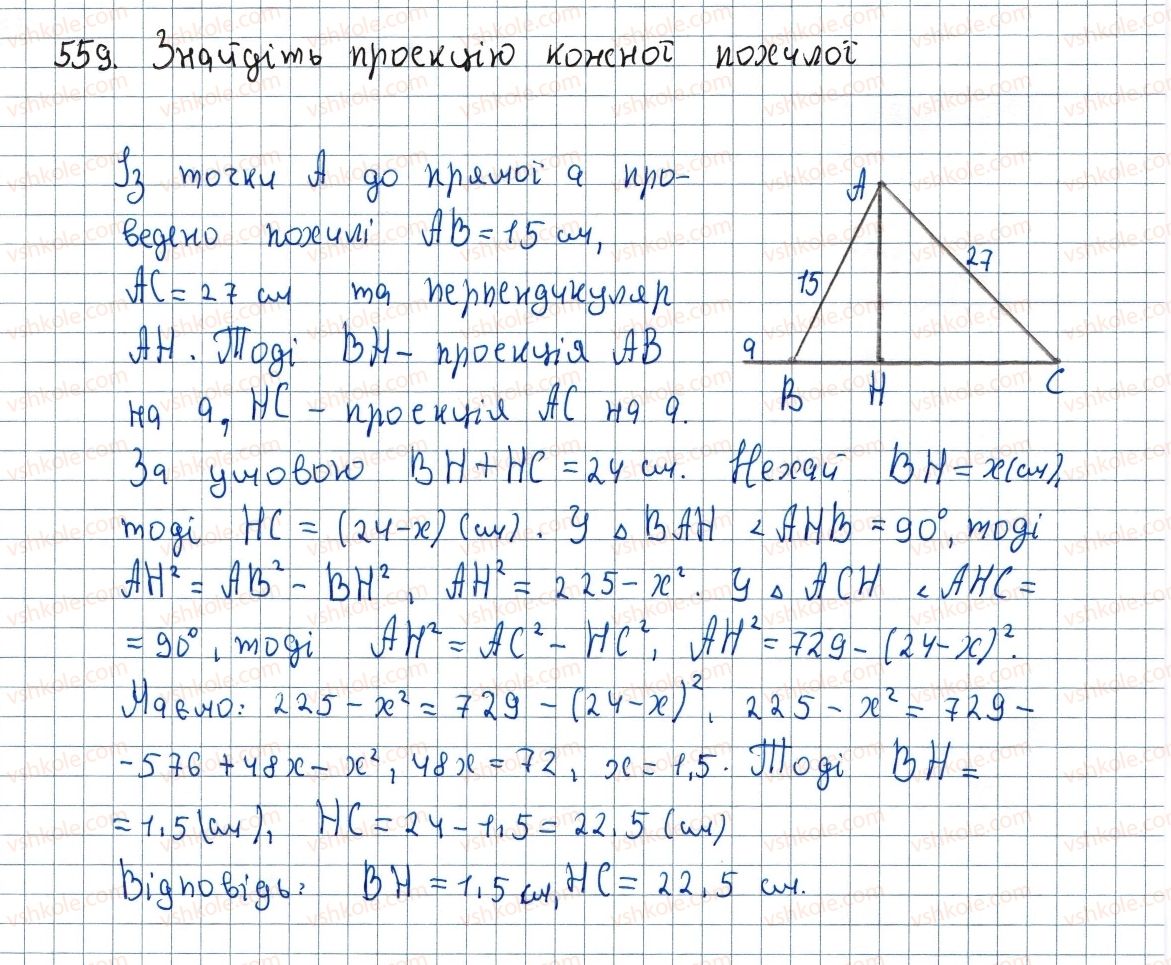 559. Знайдіть проекцію кожної похилої
Із точки A до прямої a про-
ведено похилі AB = 15 см,
AC = 27 см та перпендикуляр
AH. Тоді BH – проекція AB
на a, HC – проекція AC на a.
A
15
27
a
B
H
C
За умовою BH + HC = 24 см. Нехай BH = x(см),
тоді HC = (24-x) (см). У △ BAH ∠AHB = 90°, тоді
AH² = AB² - BH², AH² = 225 - x². У △ ACH ∠AHC =
= 90°, тоді AH² = AC² - HC², AH² = 729 - (24-x)².
Маємо: 225 - x² = 729 - (24-x)², 225 - x² = 729 -
- 576 + 48x - x², 48x = 72, x = 1,5. Тоді BH =
= 1,5 (см), HC = 24 - 1,5 = 22,5 (см)
Відповідь: BH = 1,5 см, HC = 22,5 см.
vshkole.com